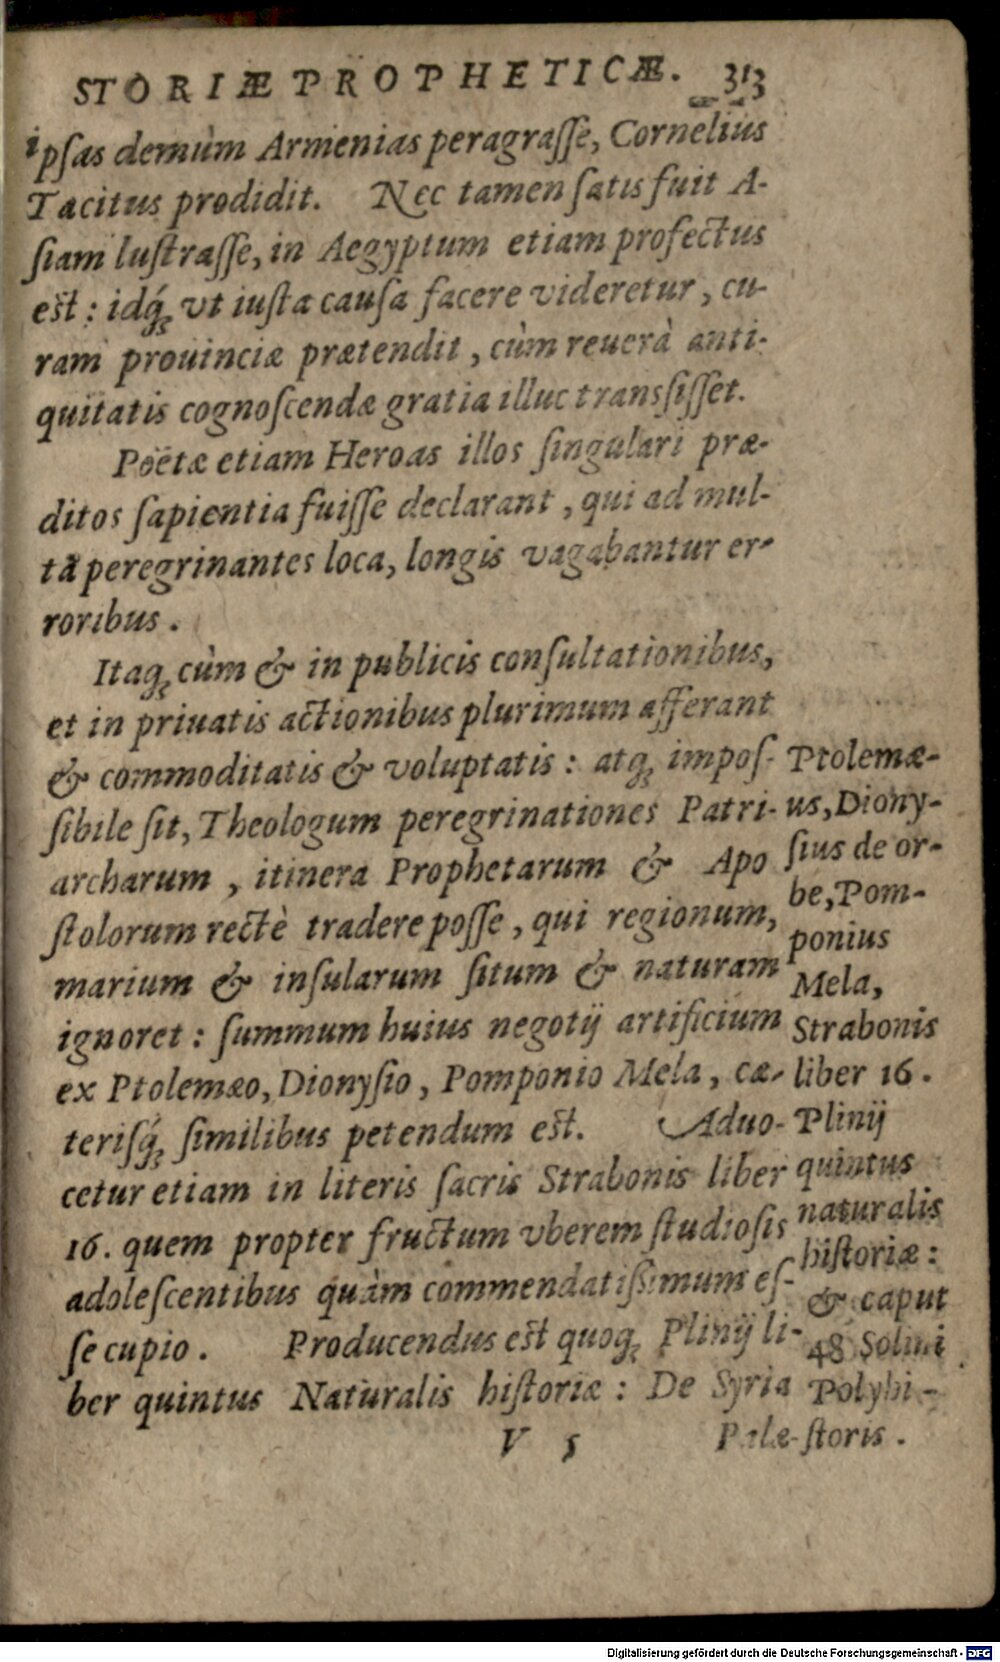 STORIÆ PROPHETICÆ. 313
ipsas demùm Armenias peragraſſe, Cornelius
Tacitus prodidit. Nec tamen ſatis fuit A-
ſiam luſtraſſe, in Aegyptum etiam profectus
eſt: idq́ꝫ vt iuſta cauſa facere videretur, cu-
ram prouinciæ prætendit, cùm reuerà anti-
quitatis cognoſcendæ gratia illuc transſiſſet.
Poëtæ etiam Heroas illos ſingulari præ-
ditos ſapientia fuiſſe declarant, qui ad mul-
tā peregrinantes loca, longis vagabantur er-
roribus.
Itaqꝫ cùm & in publicis conſultationibus,
et in priuatis actionibus plurimum afferant
& commoditatis & voluptatis: atqꝫ impoſ-
ſibile ſit, Theologum peregrinationes Patri-
archarum, itinera Prophetarum & Apo
ſtolorum rectè tradere poſſe, qui regionum,
marium & inſularum ſitum & naturam
ignoret: ſummum huius negotij artificium
ex Ptolemæo, Dionyſio, Pomponio Mela, cæ-
teriſq́ꝫ ſimilibus petendum eſt. Aduo-
cetur etiam in literis ſacris Strabonis liber
16. quem propter fructum vberem ſtudioſis
adoleſcentibus quàm commendatiſſimum eſ-
ſe cupio. Producendus eſt quoqꝫ Plinij li-
ber quintus Naturalis hiſtoriæ: De Syria
V 5 Palæ-
Ptolemæ-
us, Diony-
ſius de or-
be, Pom-
ponius
Mela,
Strabonis
liber 16.
Plinij
quintus
naturalis
hiſtoriæ:
& caput
48 Solini
Polyhi-
ſtoris.
Digitalisierung gefördert durch die Deutsche Forschungsgemeinschaft - DFG